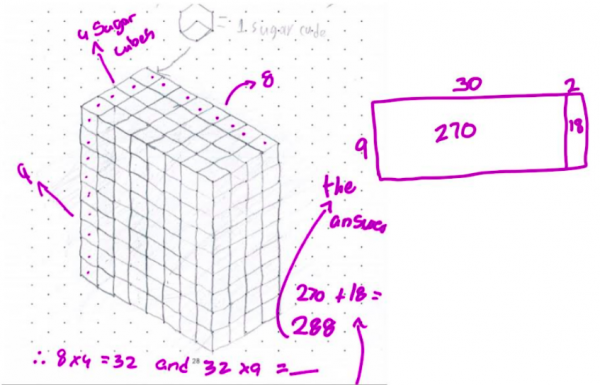 4 Sugar
cubes
= 1 sugar cube
8
9
the
answer
270 + 18 =
288
∴ 8 x 4 = 32 and 32 x 9 = __
30 2
9 270 18